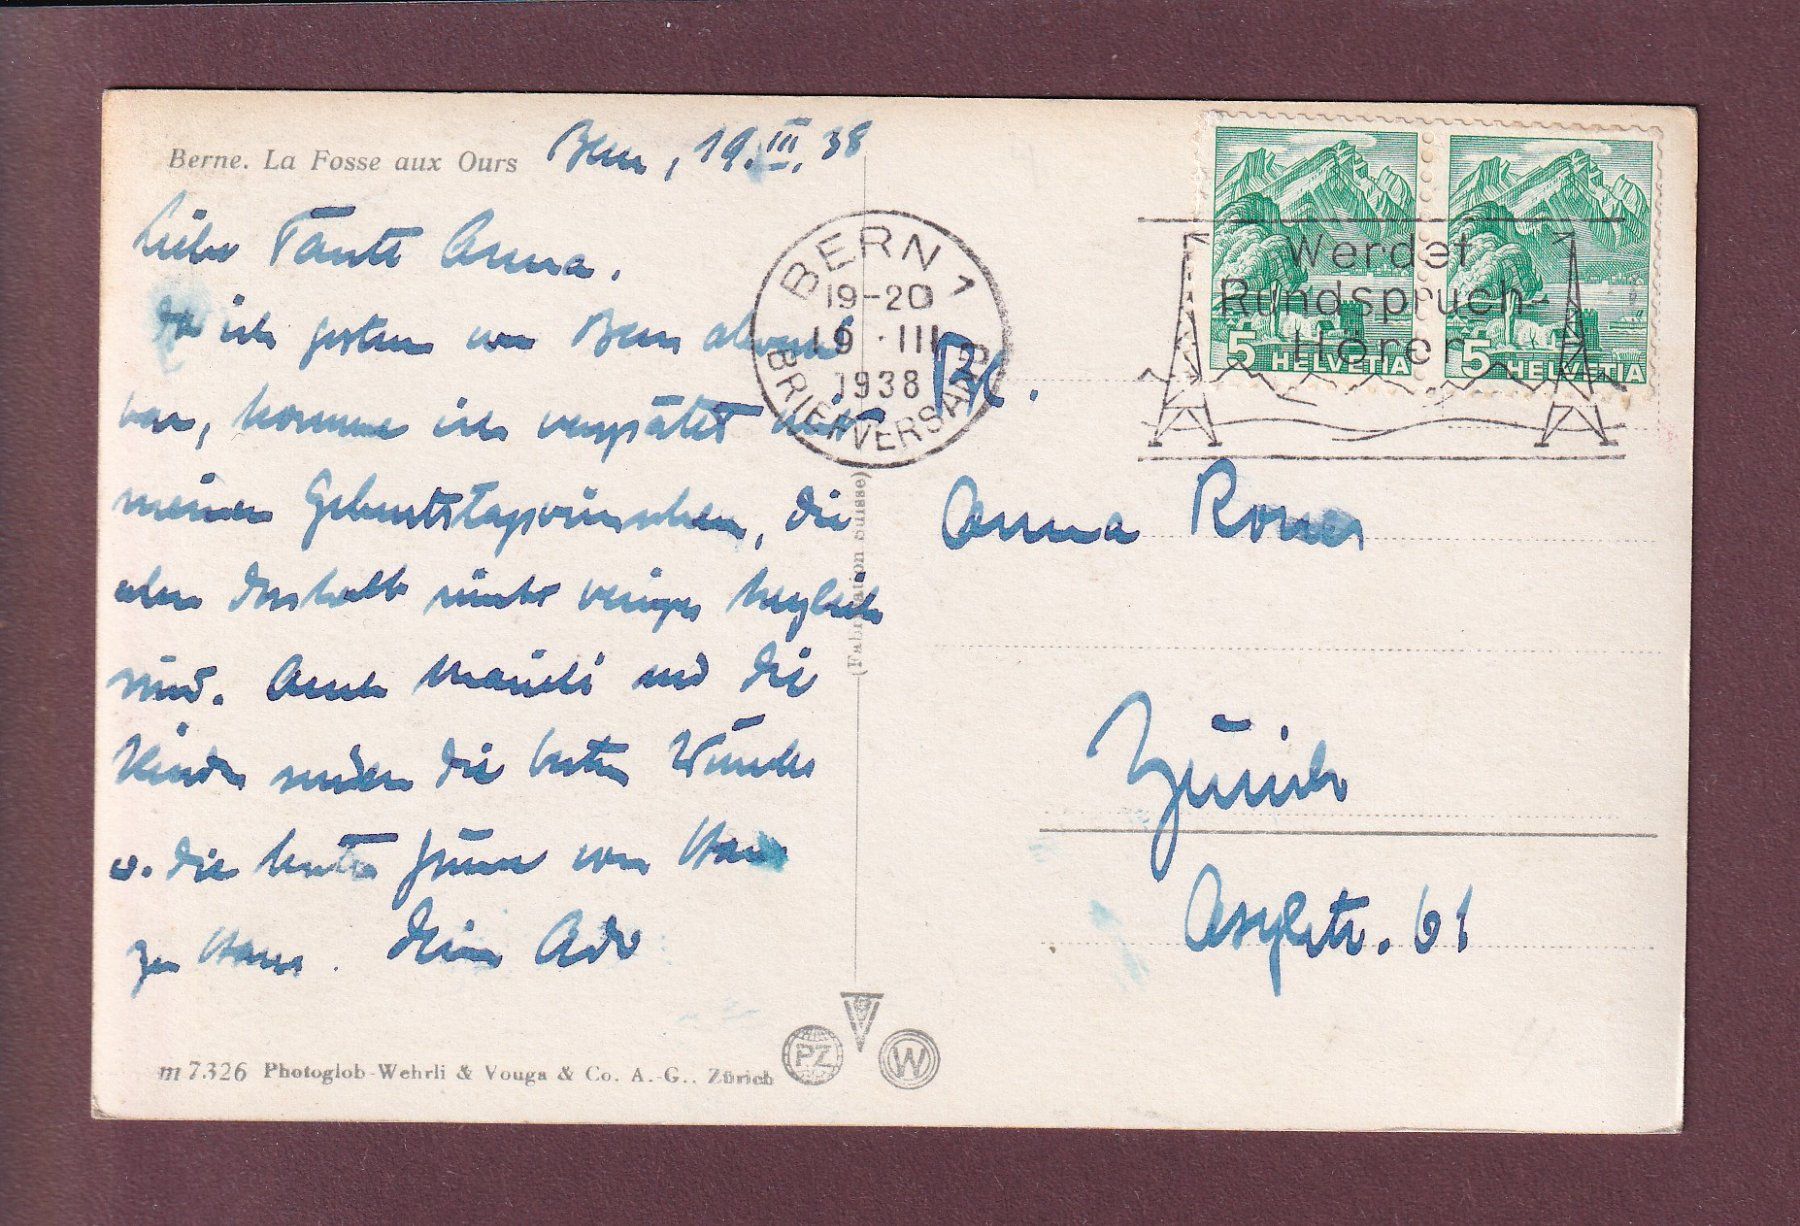 Berne. La Fosse aux Ours
Bern, 19. III. 38
Liebe Tante Anna.
Da ich gestern von Bern abwesend
war, komme ich verspätet mit
meinen Geburtstagswünschen, die
aber deshalb nicht weniger herzlich
sind. Auch und die
Kinder senden die besten Wünsche
u. die besten Grüsse von Haus
zu Haus. Dein
BERN 1
19-20
19 · III
1938
BRIEFVERSAND
Werdet
Rundspruch-
Hörer
5 HELVETIA 5 HELVETIA
Anna
Zürich
Asylstr. 61
(Fabrication Suisse)
m 7326 Photoglob-Wehrli & Vouga & Co. A.-G., Zürich
PZ
W